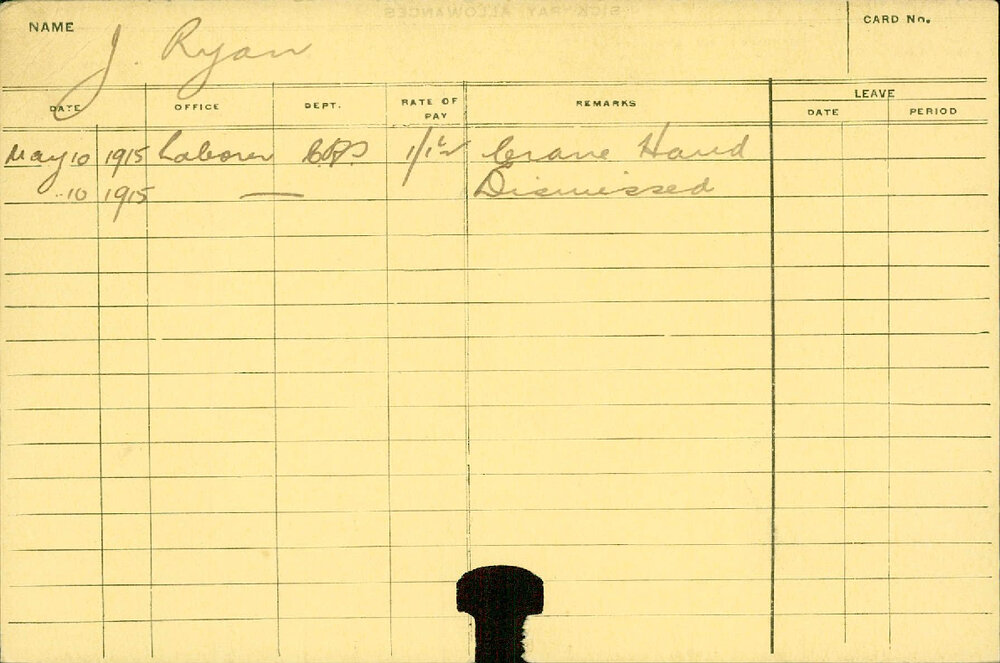 SICK PAY ALLOWANCES
NAME J. Ryan CARD No.
DATE OFFICE DEPT. RATE OF PAY REMARKS LEAVE
DATE PERIOD
May 10 1915 Laborer 1/1½ Crane Hand
" 10 1915 — Dismissed